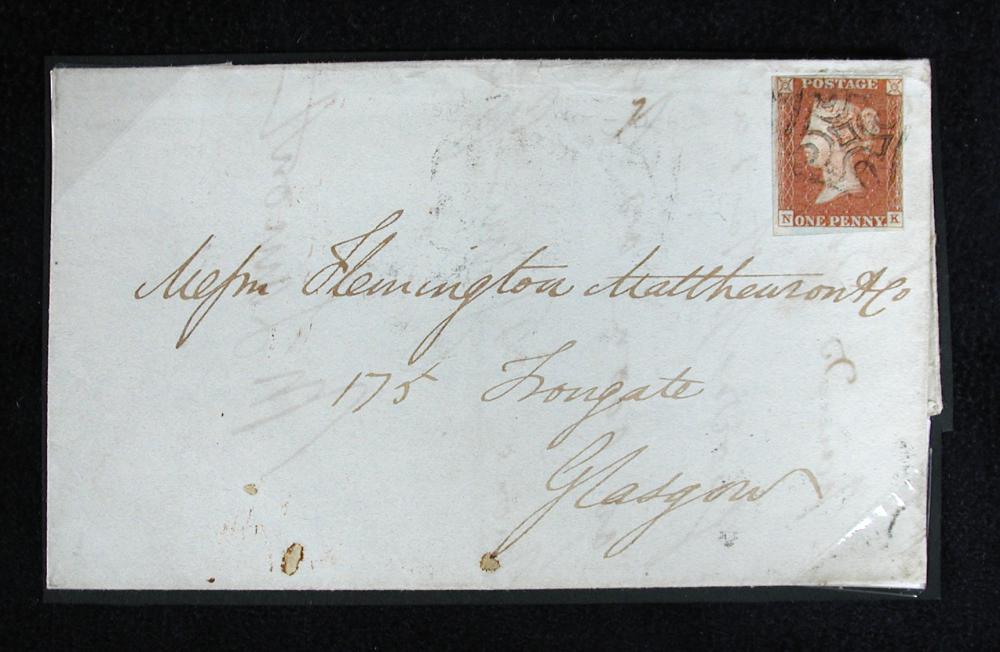 POSTAGE
N ONE PENNY. K
Messrs Flemington Matthewson & Co
175 Trongate
Glasgow